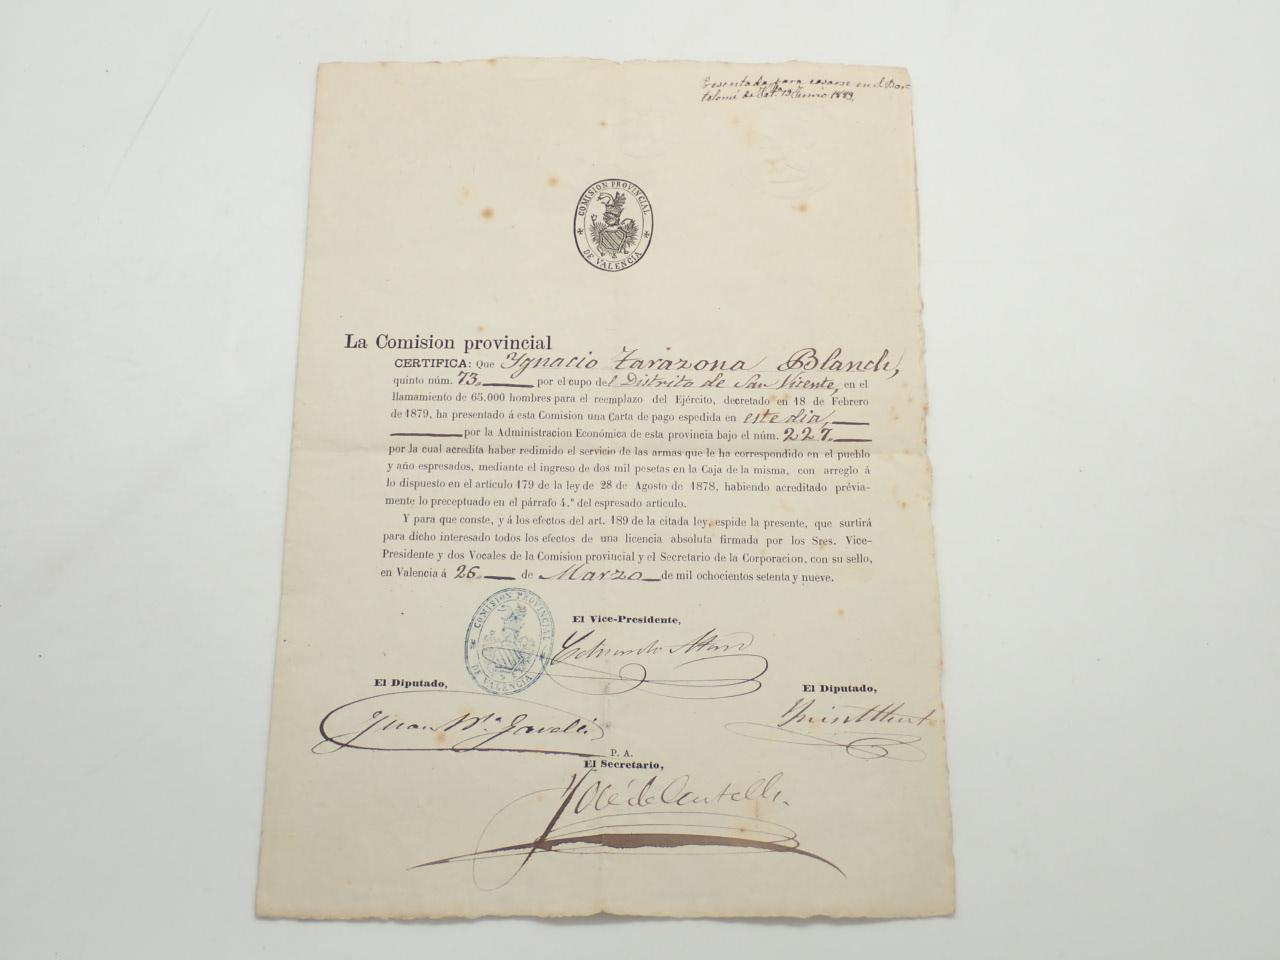 Presentada para casarse en el Bar-
tolomé de 13 Junio 1889,
COMISION PROVINCIAL
DE VALENCIA
La Comision provincial
CERTIFICA: Que Ygnacio Tarazona Blanch,
quinto núm. 73. por el cupo del Distrito de San Vicente, en el
llamamiento de 65.000 hombres para el reemplazo del Ejército, decretado en 18 de Febrero
de 1879, ha presentado á esta Comision una Carta de pago espedida en este dia,
por la Administracion Económica de esta provincia bajo el núm. 227.
por la cual acredita haber redimido el servicio de las armas que le ha correspondido en el pueblo
y año espresados, mediante el ingreso de dos mil pesetas en la Caja de la misma, con arreglo á
lo dispuesto en el artículo 179 de la ley de 28 de Agosto de 1878, habiendo acreditado prévia-
mente lo preceptuado en el párrafo 4.º del espresado artículo.
Y para que conste, y á los efectos del art. 189 de la citada ley, espide la presente, que surtirá
para dicho interesado todos los efectos de una licencia absoluta firmada por los Sres. Vice-
Presidente y dos Vocales de la Comision provincial y el Secretario de la Corporacion, con su sello,
en Valencia á 26. de Marzo de mil ochocientos setenta y nueve.
COMISION PROVINCIAL
DE VALENCIA
El Vice-Presidente,
Eduardo
El Diputado,
El Diputado,
Juan M.ª
P. A.
El Secretario,
José de